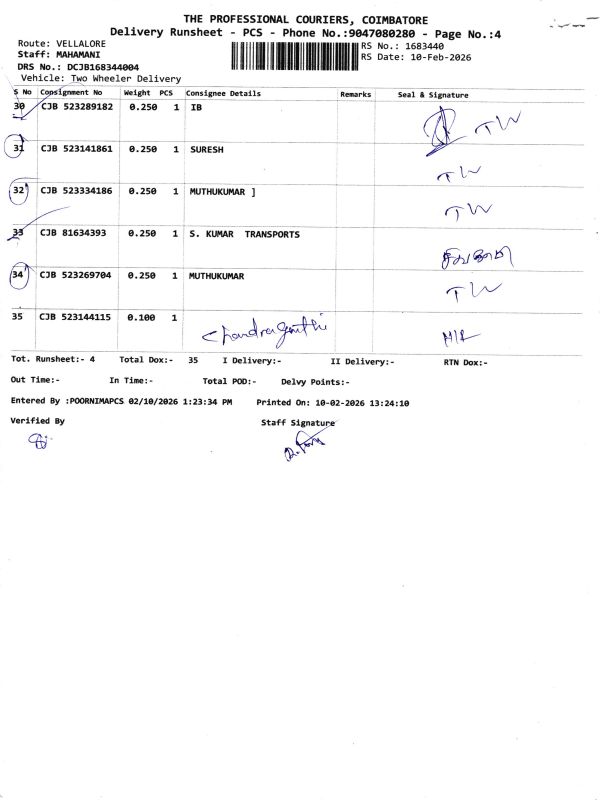 THE PROFESSIONAL COURIERS, COIMBATORE
Delivery Runsheet - PCS - Phone No.:9047080280 - Page No.:4
Route: VELLALORE
RS No.: 1683440
Staff: MAHAMANI
RS Date: 10-Feb-2026
DRS No.: DCJB168344004
Vehicle: Two Wheeler Delivery
S No Consignment No Weight PCS Consignee Details Remarks Seal & Signature
30 CJB 523289182 0.250 1 IB TW
31 CJB 523141861 0.250 1 SURESH TW
32 CJB 523334186 0.250 1 MUTHUKUMAR ] TW
33 CJB 81634393 0.250 1 S. KUMAR TRANSPORTS
34 CJB 523269704 0.250 1 MUTHUKUMAR TW
35 CJB 523144115 0.100 1
Tot. Runsheet:- 4 Total Dox:- 35 I Delivery:- II Delivery:- RTN Dox:-
Out Time:- In Time:- Total POD:- Delvy Points:-
Entered By :POORNIMAPCS 02/10/2026 1:23:34 PM Printed On: 10-02-2026 13:24:10
Verified By Staff Signature